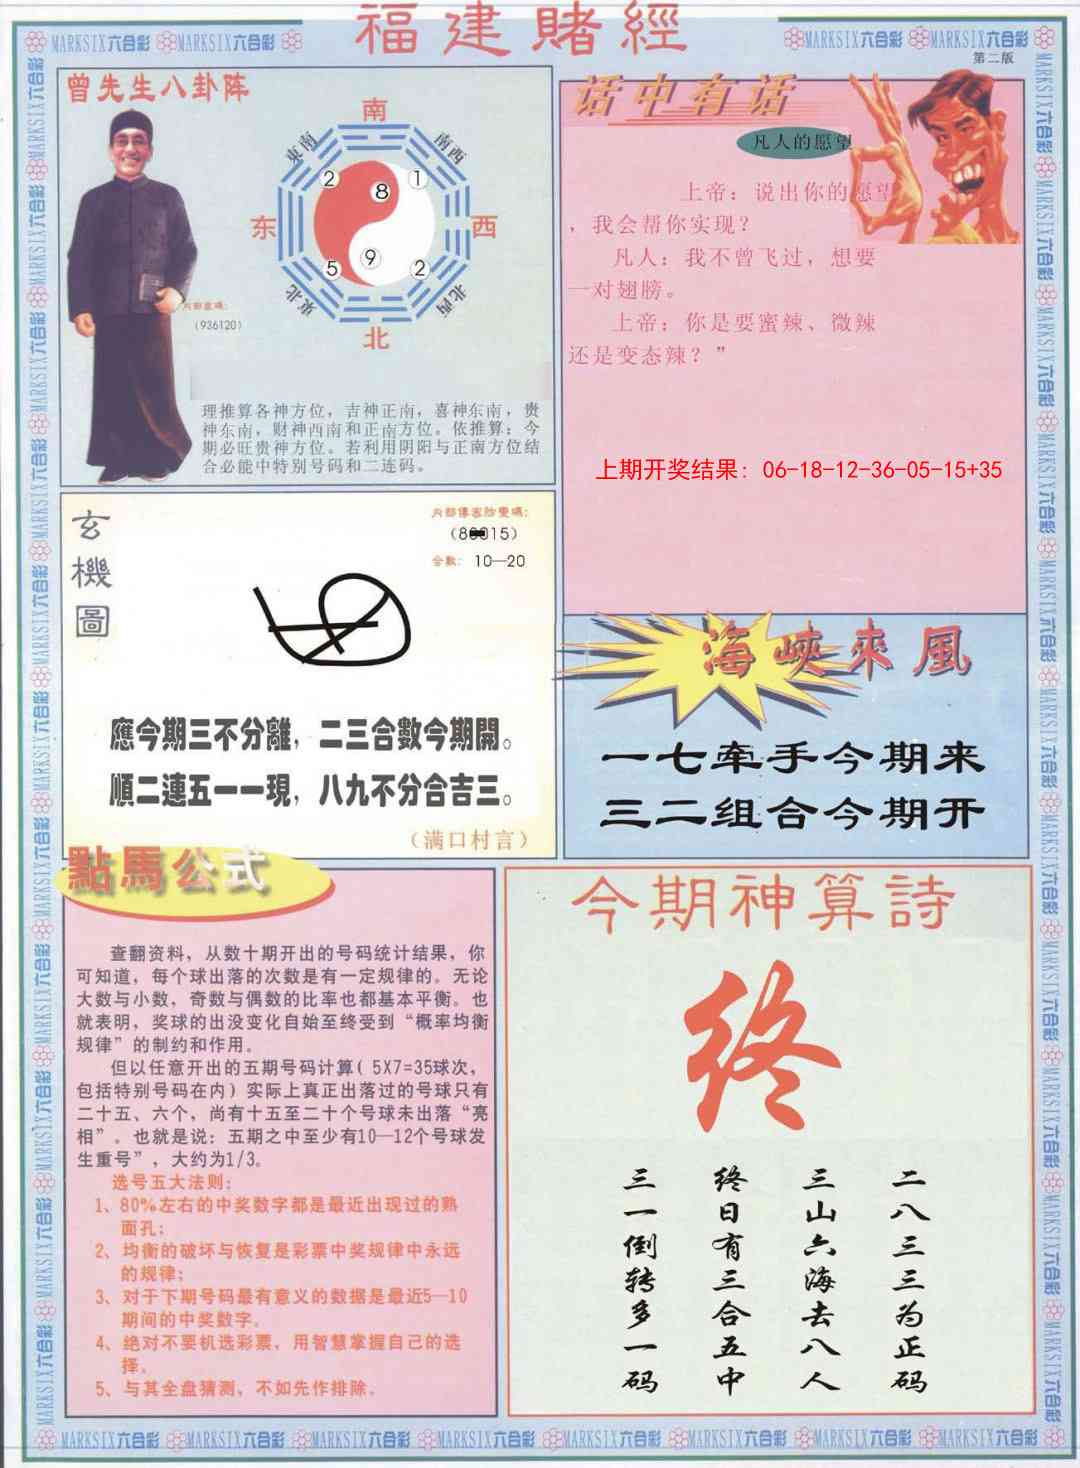 福建賭經
MARKSIX六合彩 MARKSIX六合彩
MARKSIX六合彩 MARKSIX六合彩
第二版
曾先生八卦阵
南
東南
南西
2
8
1
东
西
5
9
2
東北
北西
北
内部直碼:
(936120)
理推算各神方位，吉神正南，喜神东南，贵
神东南，财神西南和正南方位。依推算：今
期必旺贵神方位。若利用阴阳与正南方位结
合必能中特别号码和二连码。
话中有话
凡人的愿望
上帝：说出你的愿望
，我会帮你实现？
凡人：我不曾飞过，想要
一对翅膀。
上帝：你是要蜜辣、微辣
还是变态辣？”
上期开奖结果：06-18-12-36-05-15+35
玄機圖
合數: 10—20
應今期三不分離，二三合數今期開。
順二連五一一現，八九不分合吉三。
（满口村言）
海峽來風
一七牵手今期来
三二组合今期开
點馬公式
查翻资料，从数十期开出的号码统计结果，你
可知道，每个球出落的次数是有一定规律的。无论
大数与小数，奇数与偶数的比率也都基本平衡。也
就表明，奖球的出没变化自始至终受到“概率均衡
规律”的制约和作用。
但以任意开出的五期号码计算（5X7=35球次，
包括特别号码在内）实际上真正出落过的号球只有
二十五、六个，尚有十五至二十个号球未出落“亮
相”。也就是说：五期之中至少有10—12个号球发
生重号”，大约为1/3。
选号五大法则：
1、80%左右的中奖数字都是最近出现过的熟
面孔；
2、均衡的破坏与恢复是彩票中奖规律中永远
的规律；
3、对于下期号码最有意义的数据是最近5—10
期间的中奖数字。
4、绝对不要机选彩票，用智慧掌握自己的选
择。
5、与其全盘猜测，不如先作排除。
今期神算詩
终
二八三三为正码
三山六海去八人
终日有三合五中
三一倒转多一码
MARKSIX六合彩 MARKSIX六合彩 MARKSIX六合彩 MARKSIX六合彩 MARKSIX六合彩 MARKSIX六合彩 MARKSIX六合彩 MARKSIX六合彩